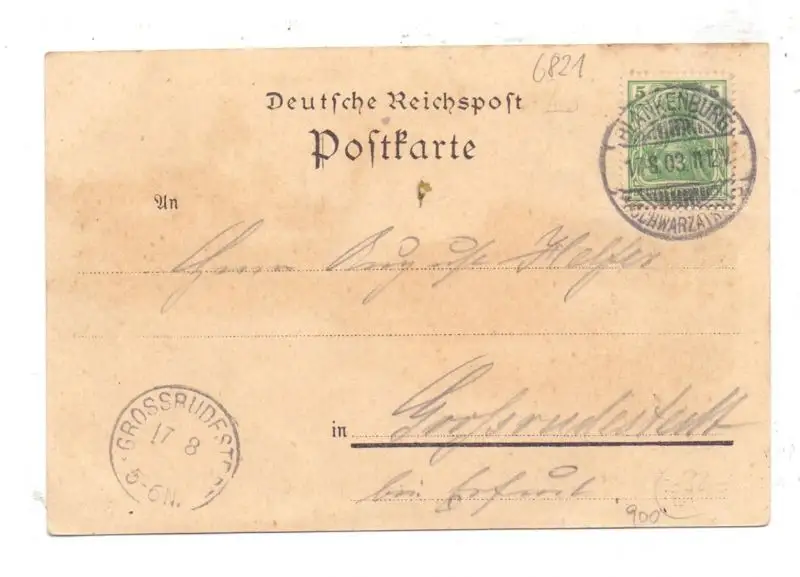 6821
5 5
Deutsche Reichspost
Postkarte
BLANKENBURG
8.03.11-12V
(SCHWARZATH
An
Herrn August Helfer
GROSSRUDESTE
17 8
5-6N.
in Großrudestedt
bei Erfurt
900